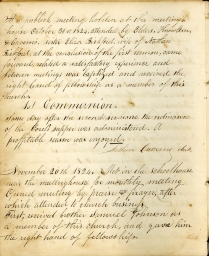 At a publick meeting holden at the meeting
house October 31st 1824, attended by Elders
& Caverno, sister Eliza wife of
at the conclusion of the first sermon, came
forward, related a satisfactory experience and
between meetings was baptized and received the
right hand of fellowship as a member of this
church.
1st Communion.
Same day after the second sermon the ordinance
of the Lord's supper was administered. A
profitable season was enjoyed.
Arthur Caverno Clerk
November 20th 1824. Met in the schoolhouse
near the meetinghouse for monthly meeting
Opened meeting by praise & prayer, after
which attended to church business.
First, received brother Samuel Johnson as
a member of this church, and gave him
the right hand of fellowship.